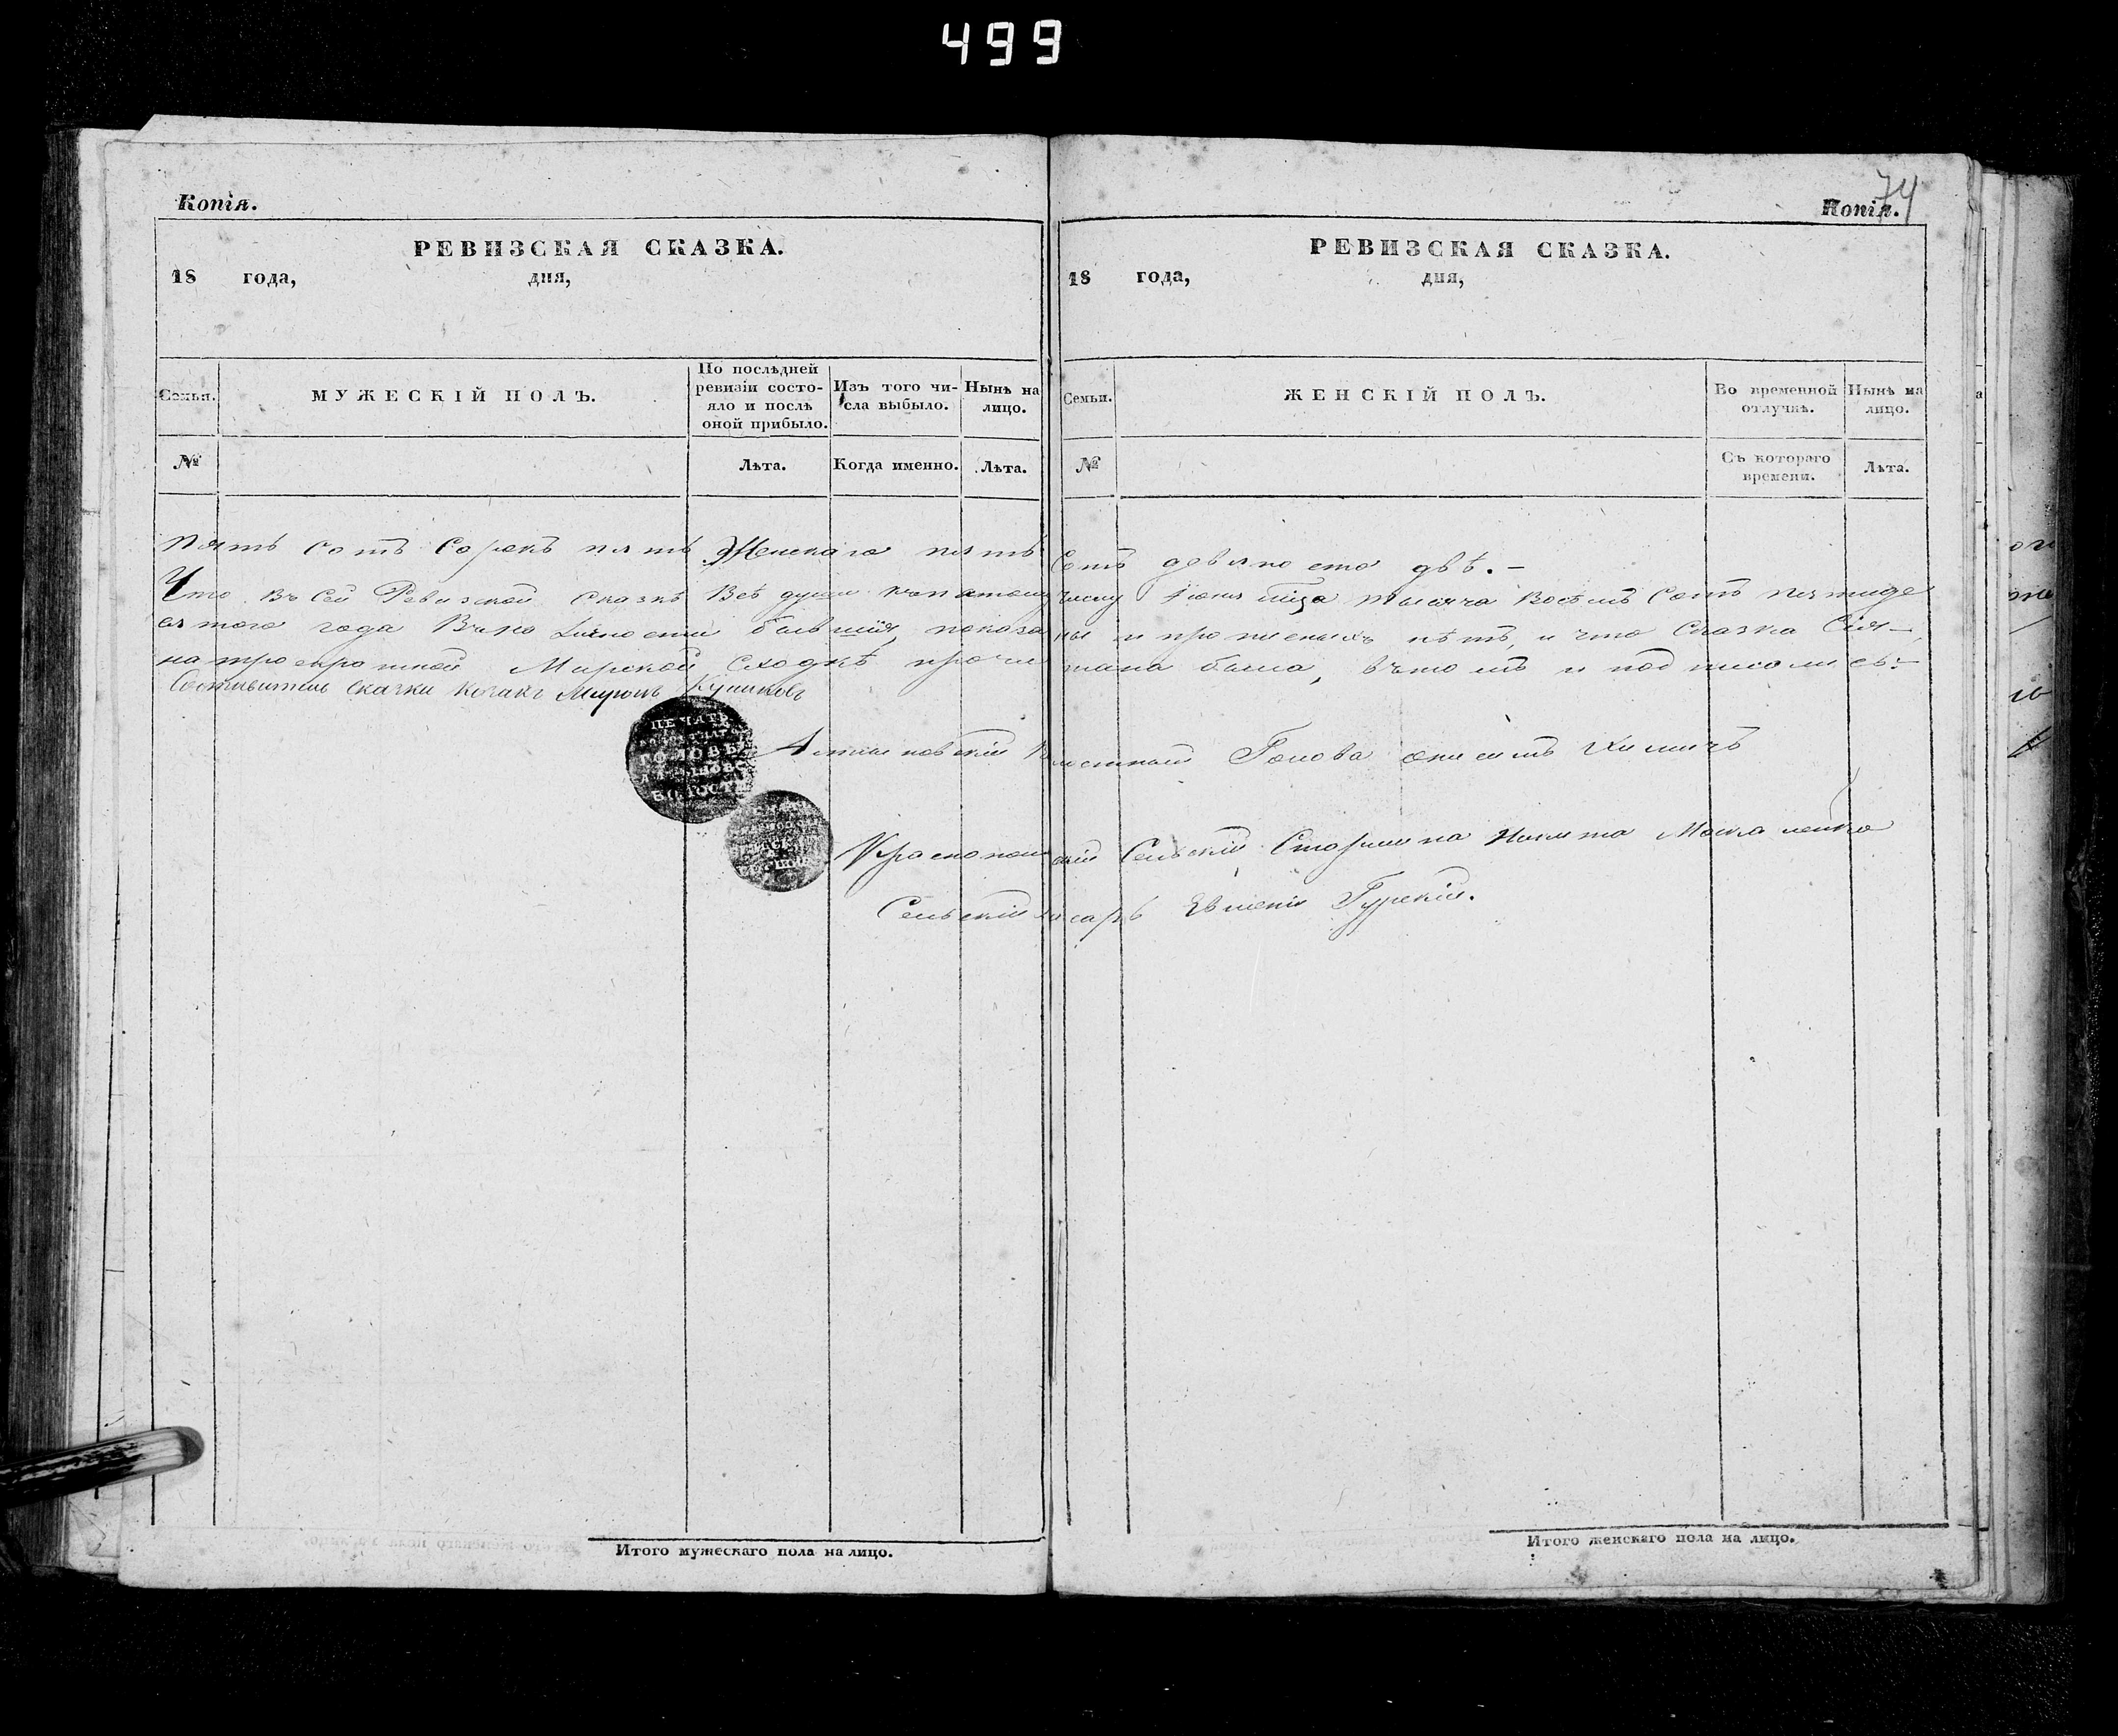 499
74
Копія.
РЕВИЗСКАЯ СКАЗКА.
18 года, дня,
Семьи.
МУЖЕСКІЙ ПОЛЪ.
По послѣдней ревизіи состо-
яло и послѣ оной прибыло.
Изъ того чи-
сла выбыло.
Нынѣ на лицо.
№
Лѣта.
Когда именно.
Лѣта.
Копія.
РЕВИЗСКАЯ СКАЗКА.
18 года, дня,
Семьи.
ЖЕНСКІЙ ПОЛЪ.
Во временной отлучкѣ.
Нынѣ на лицо.
№
Съ котораго времени.
Лѣта.
пять сотъ Сорокъ пять Женскаго пять Сотъ девяносто двѣ.-
Что въ Сей Ревизской Сказкѣ Всѣ души числу Іюня тысяча Восемъ Сотъ пятиде
ятого года бывшія, показаны и прописныхъ нѣтъ, и что Сказка Сія
Мирской Сходкѣ прочитана была, въ томъ и подписались:-
Сказки козакъ Миронъ
ПЕЧАТЬ ГОЛОВЫ ВОЛОСТИ
Голова
Сельскій Старшина Никита Москаленко
Сельскій писарь Евгеній Гурскій.
Итого мужескаго пола на лицо.
Итого женскаго пола на лицо.